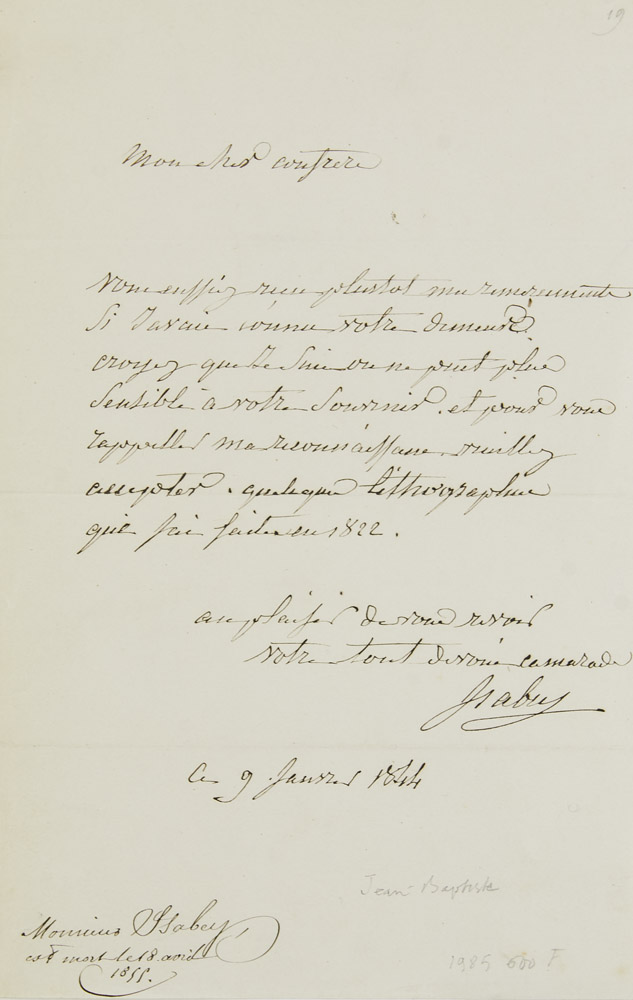 19
Mon cher confrere
Vous eussiez recu plustot mes remerciments
Si J'avais connu votre demeure.
croyez que Je Suis on ne peut plus
Sensible a votre Souvenir. et pour vous
rappeller ma reconnaissance, veuillez
accepter. quelques lithographies
que j'ai faites en 1822.
au plaisir de vous revoir
votre tout devoué camarade
Isabey
Ce 9 Janvier 1844
Jean Baptiste
Monsieur Isabey
est mort le 18 avril
1855.
1985 600 F